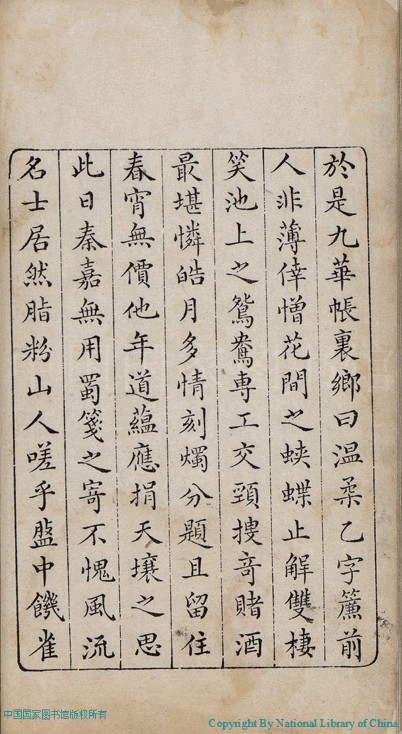 於是九華帳裏鄉曰温柔乙字簾前
人非薄倖憎花間之蛺蝶止解雙棲
笑池上之鴛鴦專工交頸搜竒賭酒
最堪憐皓月多情刻燭分題且留住
春宵無價他年道藴應捐天壤之思
此日秦嘉無用蜀箋之寄不愧風流
名士居然脂粉山人嗟乎盤中饑雀
中国国家图书馆版权所有
Copyright By National Library of China